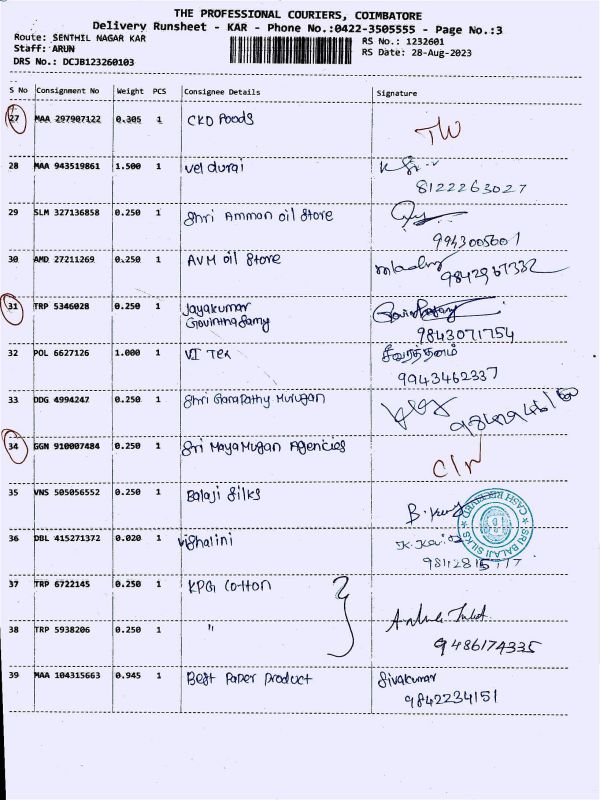 THE PROFESSIONAL COURIERS, COIMBATORE
Delivery Runsheet - KAR - Phone No.:0422-3505555 - Page No.:3
Route: SENTHIL NAGAR KAR
RS No.: 1232601
Staff: ARUN
RS Date: 28-Aug-2023
DRS No.: DCJB123260103
S No Consignment No Weight PCS Consignee Details Signature
27 MAA 297907122 0.305 1 CKD Foods
TW
28 MAA 943519861 1.500 1 Vel durai
8122263027
29 SLM 327136858 0.250 1 Shri Amman oil Store
9943005601
30 AMD 27211269 0.250 1 AVM oil Store
31 TRP 5346028 0.250 1 Jayakumar
Govinthasamy
9843071754
32 POL 6627126 1.000 1 VI Tex
சீவரத்தனம்
9943462337
33 DDG 4994247 0.250 1 Shri Ganapathy Murugan
34 GGN 910007484 0.250 1 Sri Maya Mugan Agencies
35 VNS 505056552 0.250 1 Balaji Silks
SRI BALAJI SILKS * CASH RECEIVED *
36 DBL 415271372 0.020 1 Vishalini
37 TRP 6722145 0.250 1 KPG Cotton
38 TRP 5938206 0.250 1 "
9486174335
39 MAA 104315663 0.945 1 Best Paper product Sivakumar
9842234151